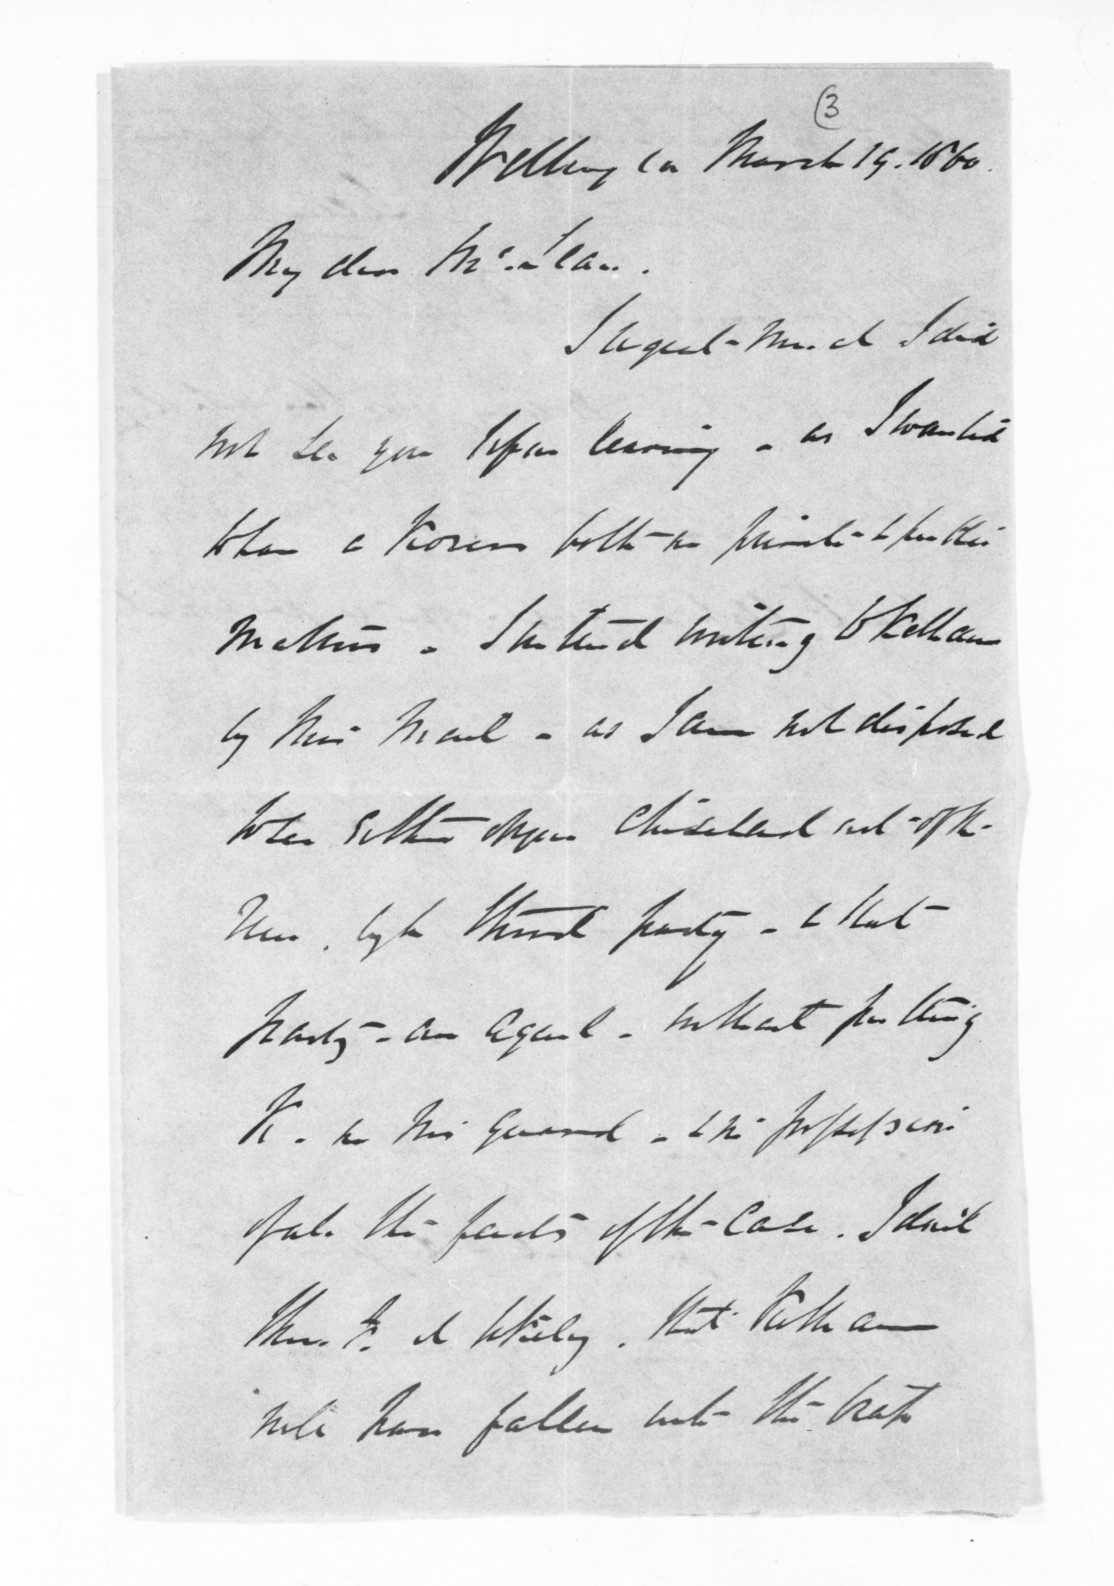 3
Wellington March 19. 1860.
My dear McLean.
I regret much I did
not see you before leaving - as I wanted
to have a Korero both on private & public
matters - I intend writing to Kelham
by this Mail - as I am not disposed
to see either chiselled out of
by the third party - & that
party - an Agent - without putting
K. on his guard - & in possession
of all the facts of the Case. I don't
think it likely. that Kelham
will have fallen into the trap